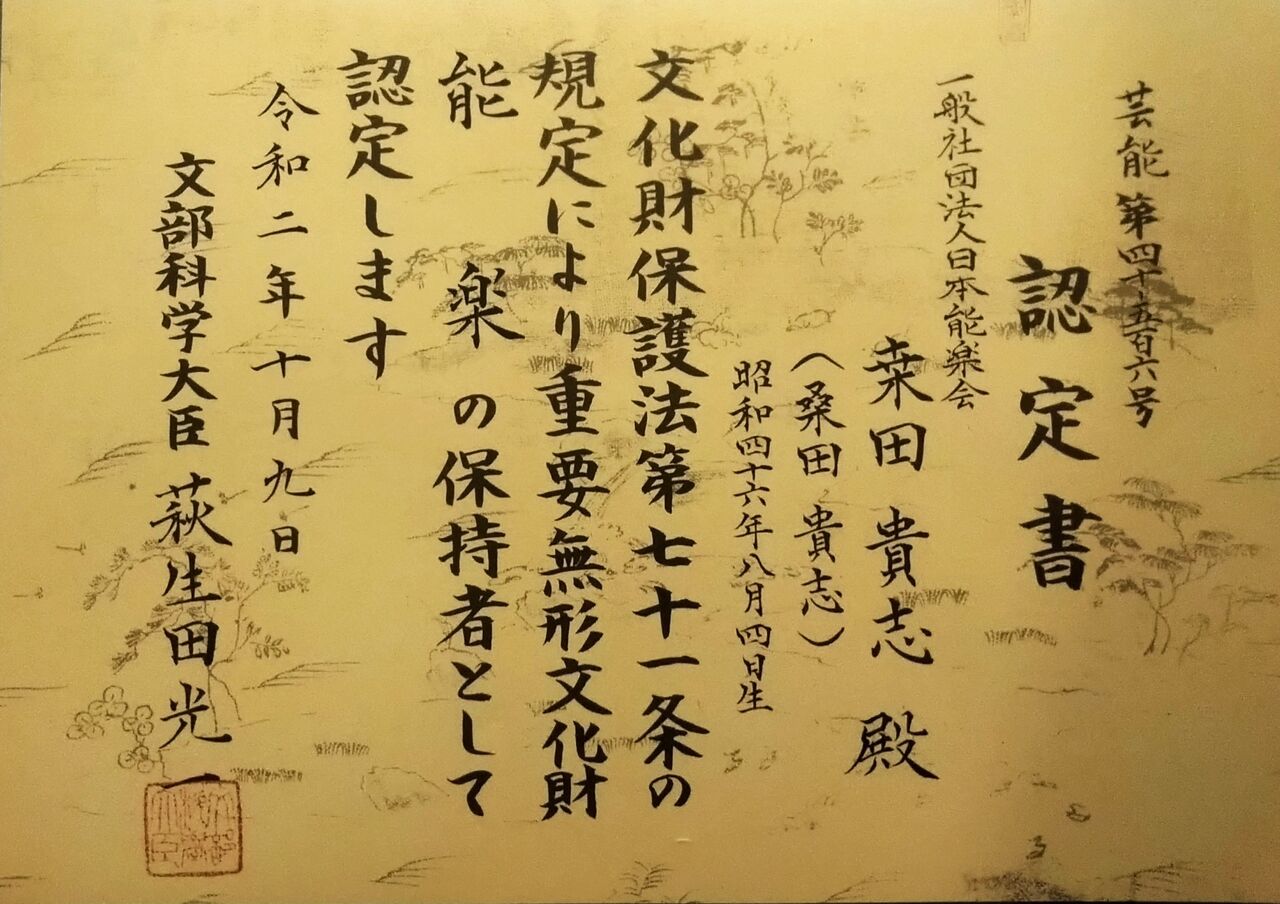 芸能第四千五百六号
認定書
一般社団法人日本能楽会
桒田貴志殿
(桑田貴志)
昭和四十六年八月四日生
文化財保護法第七十一条の
規定により重要無形文化財
能楽の保持者として
認定します
令和二年十月九日
文部科学大臣萩生田光一